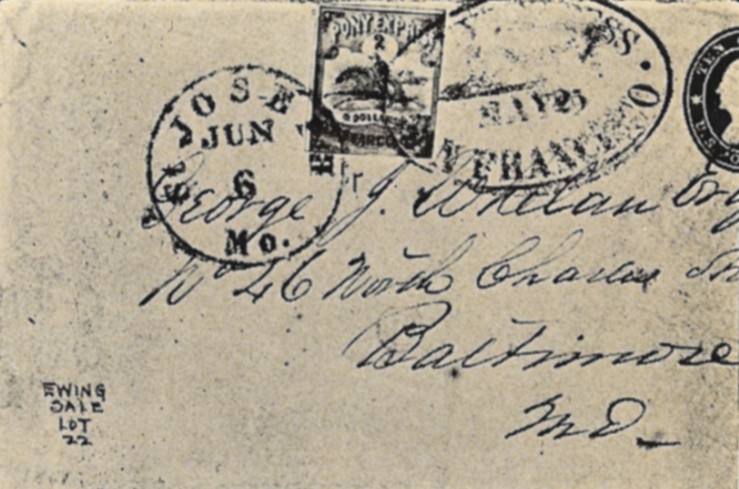 PONY EXPRE
2
DOLLAR
SS.
MAY 25
N FRANCISCO
TEN
U.S. PO
ST. JOSE
JUN
6
Mo.
George J. Whelan Esq
No 46 North Charles
Baltimore
Md
EWING
SALE
LOT
22